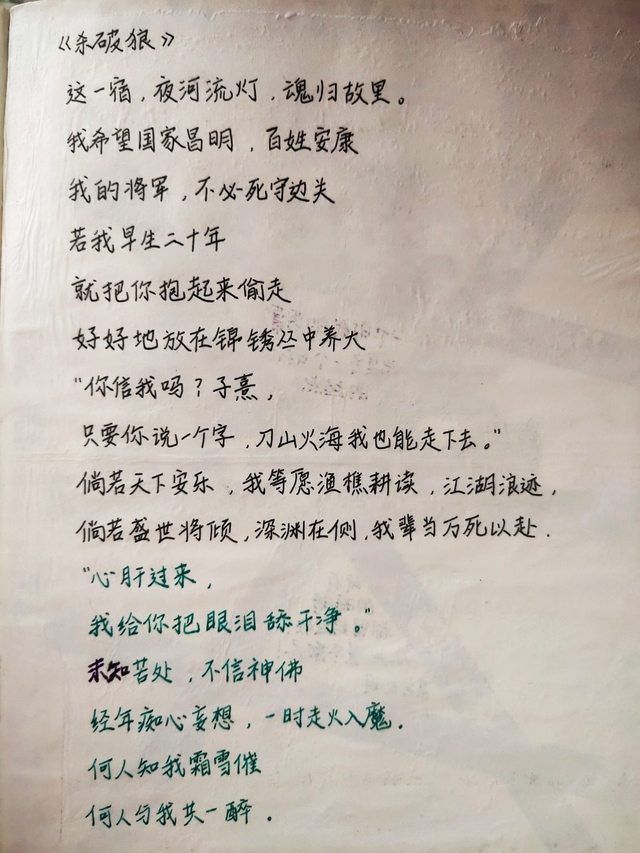 《杀破狼》
这一宿，夜河流灯，魂归故里。
我希望国家昌明，百姓安康
我的将军，不必死守边关
若我早生二十年
就把你抱起来偷走
好好地放在锦锈丛中养大
“你信我吗？子熹，
只要你说一个字，刀山火海我也能走下去。”
倘若天下安乐，我等愿渔樵耕读，江湖浪迹，
倘若盛世将倾，深渊在侧，我辈当万死以赴.
“心肝过来，
我给你把眼泪舔干净。”
未知苦处，不信神佛
经年痴心妄想，一时走火入魔.
何人知我霜雪催
何人与我共一醉.